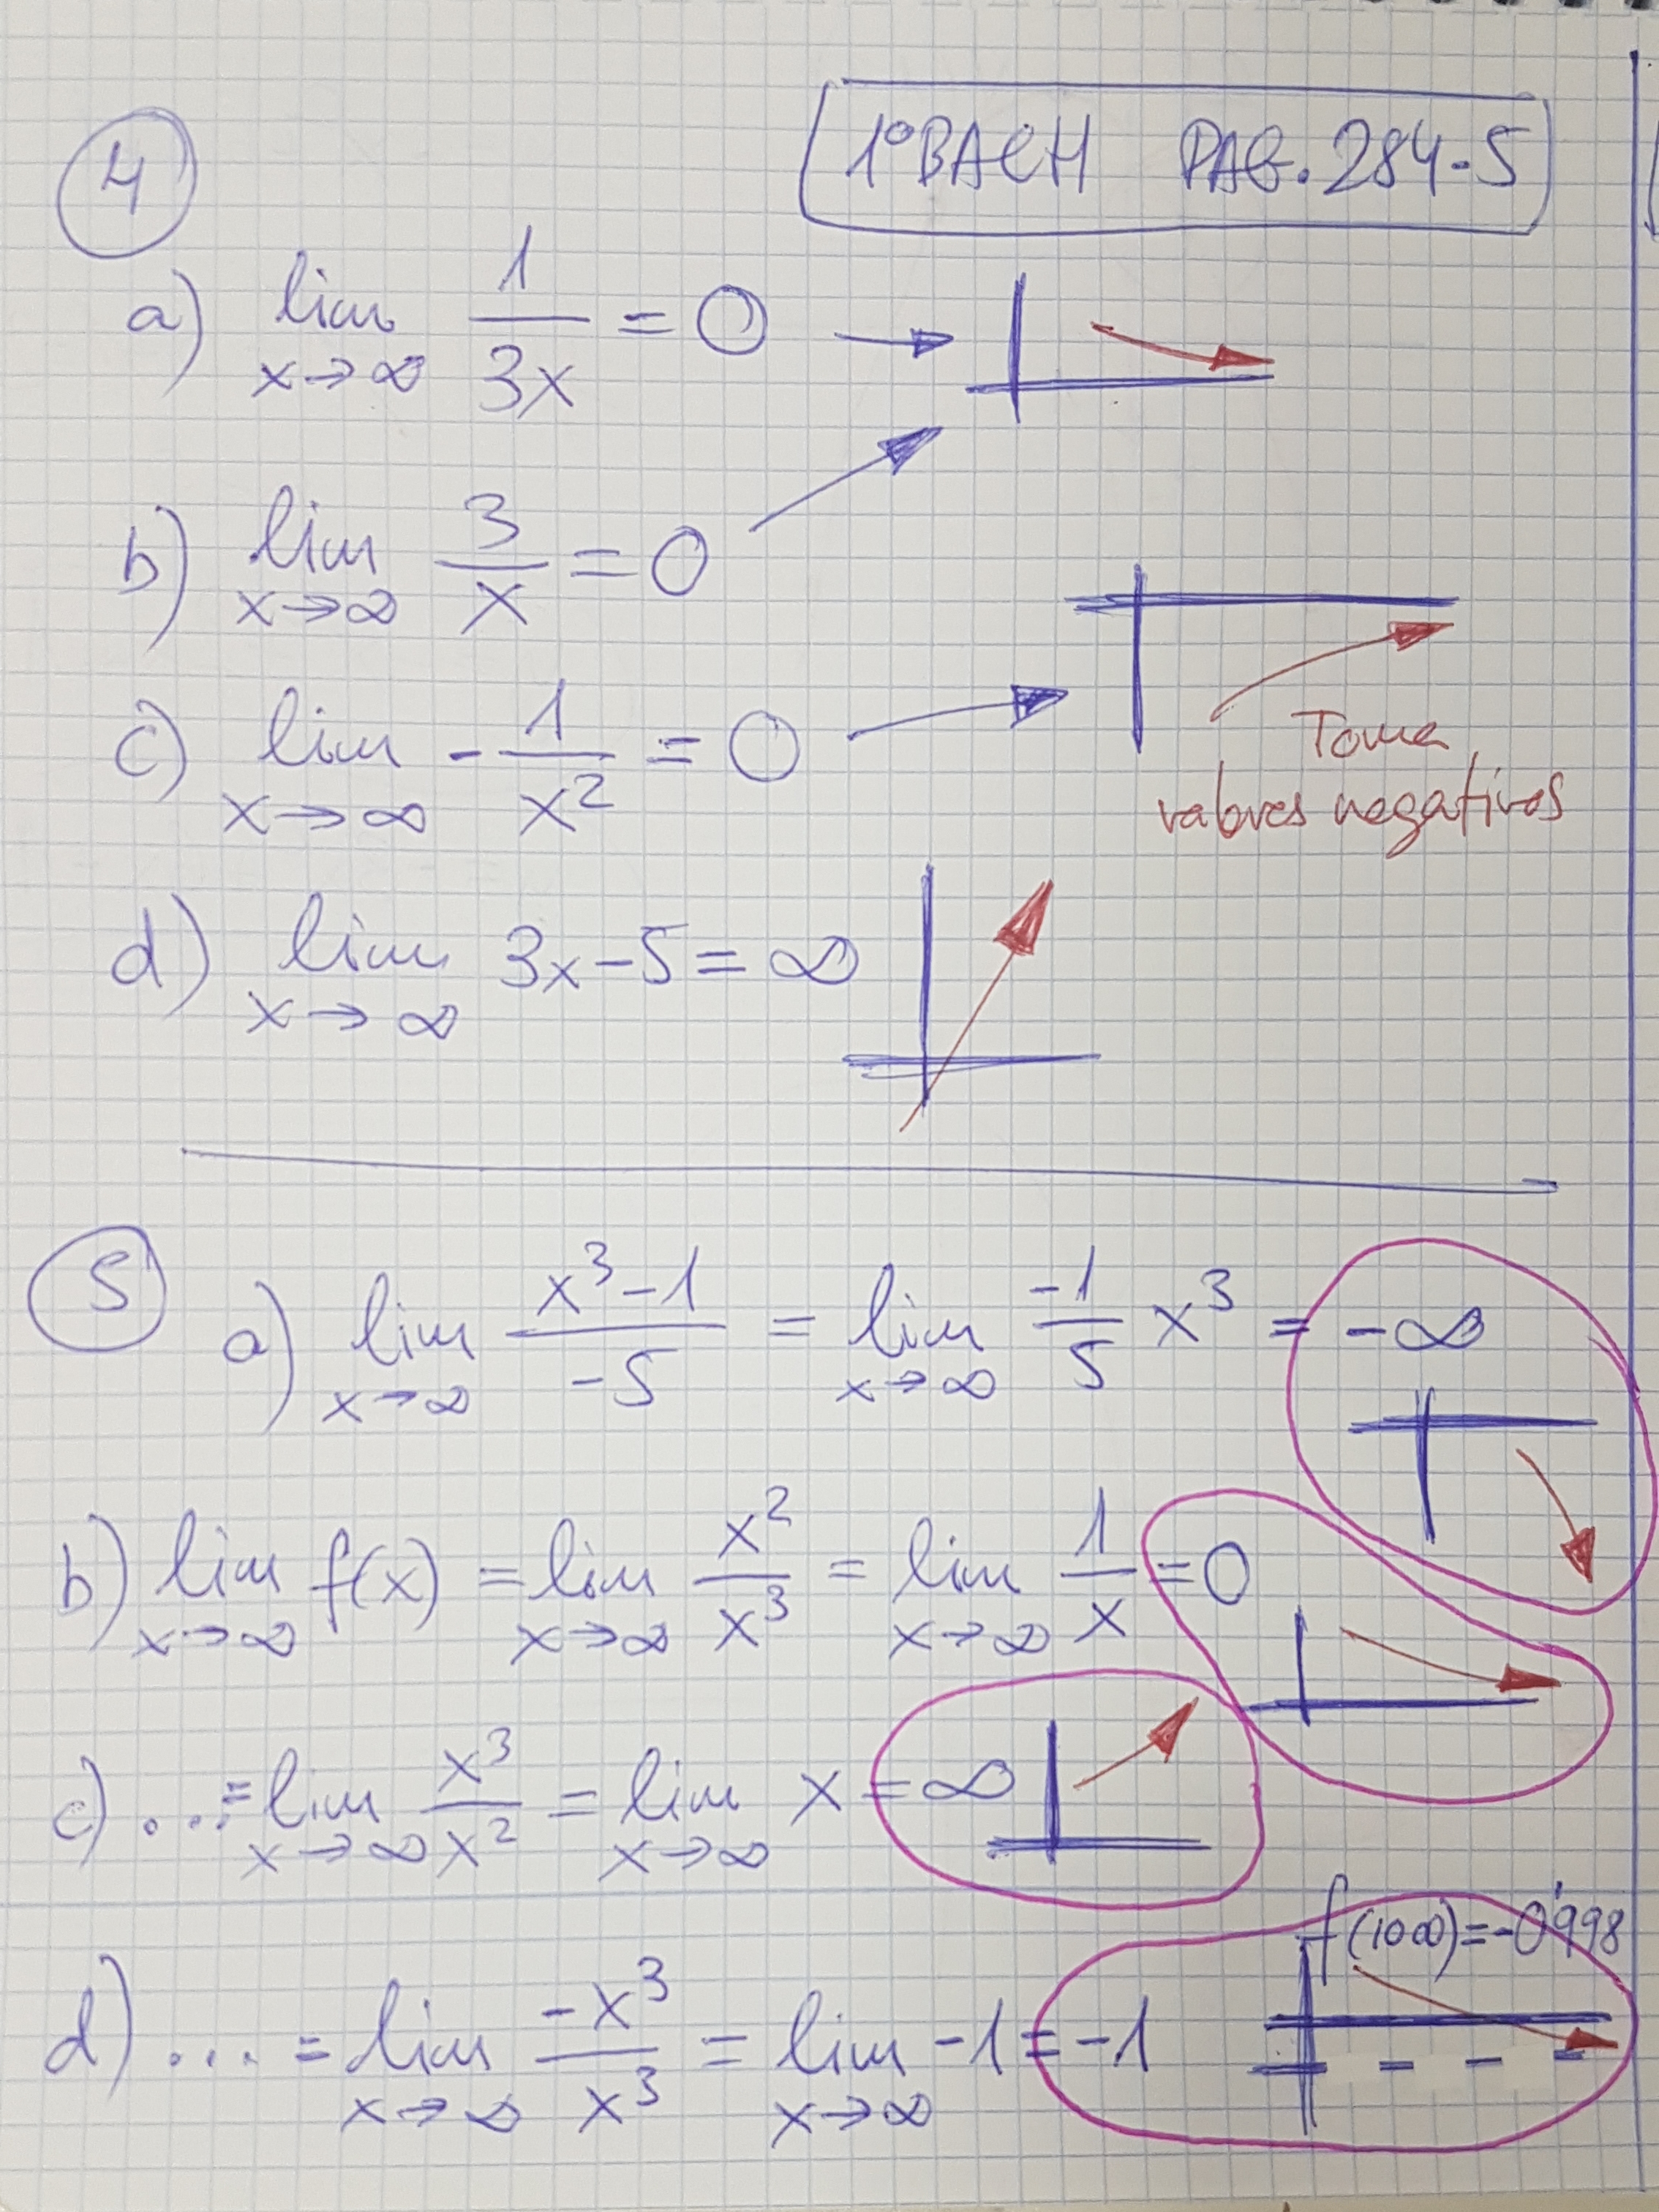 1º BACH PAG. 284-5
4
a) lim x→∞ 1/3x = 0
b) lim x→∞ 3/x = 0
c) lim x→∞ -1/x² = 0
Toma
valores negativos
d) lim x→∞ 3x-5 = ∞
5
a) lim x→∞ (x³-1)/-5 = lim x→∞ -1/5 x³ = -∞
b) lim x→∞ f(x) = lim x→∞ x²/x³ = lim x→∞ 1/x = 0
c) ... = lim x→∞ x³/x² = lim x→∞ x = ∞
f(1000)=-0'998
d) ... = lim x→∞ -x³/x³ = lim x→∞ -1 = -1